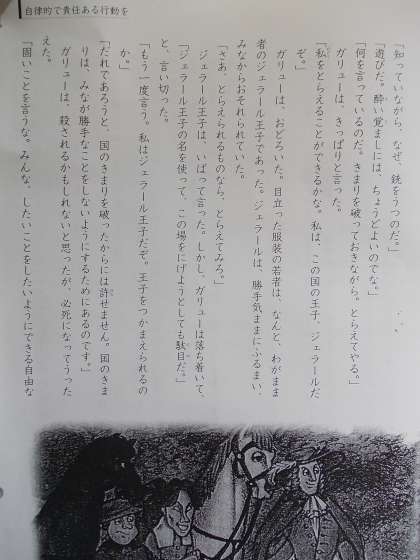 自律的で責任ある行動を
「知っていながら、なぜ、銃をうつのだ。」
「遊びだ。酔い覚ましには、ちょうどよいのでな。」
「何を言っているのだ。きまりを破っておきながら。とらえてやる。」
ガリューは、きっぱりと言った。
「私をとらえることができるかな。私は、この国の王子、ジェラールだ
ぞ。」
ガリューは、おどろいた。目立った服装の若者は、なんと、わがまま
者のジェラール王子であった。ジェラールは、勝手気ままにふるまい、
みなからおそれられていた。
「さあ、とらえられるものなら、とらえてみろ。」
ジェラール王子は、いばって言った。しかし、ガリューは落ち着いて、
「ジェラール王子の名を使って、この場をにげようとしても駄目だ。」
と、言い切った。
「もう一度言う。私はジェラール王子だぞ。王子をつかまえられるの
か。」
「だれであろうと、国のきまりを破ったからには許せません。国のきま
りは、みなが勝手なことをしないようにするためにあるのです。」
ガリューは、殺されるかもしれないと思ったが、必死になってうった
えた。
「固いことを言うな。みんな、したいことをしたいようにできる自由な